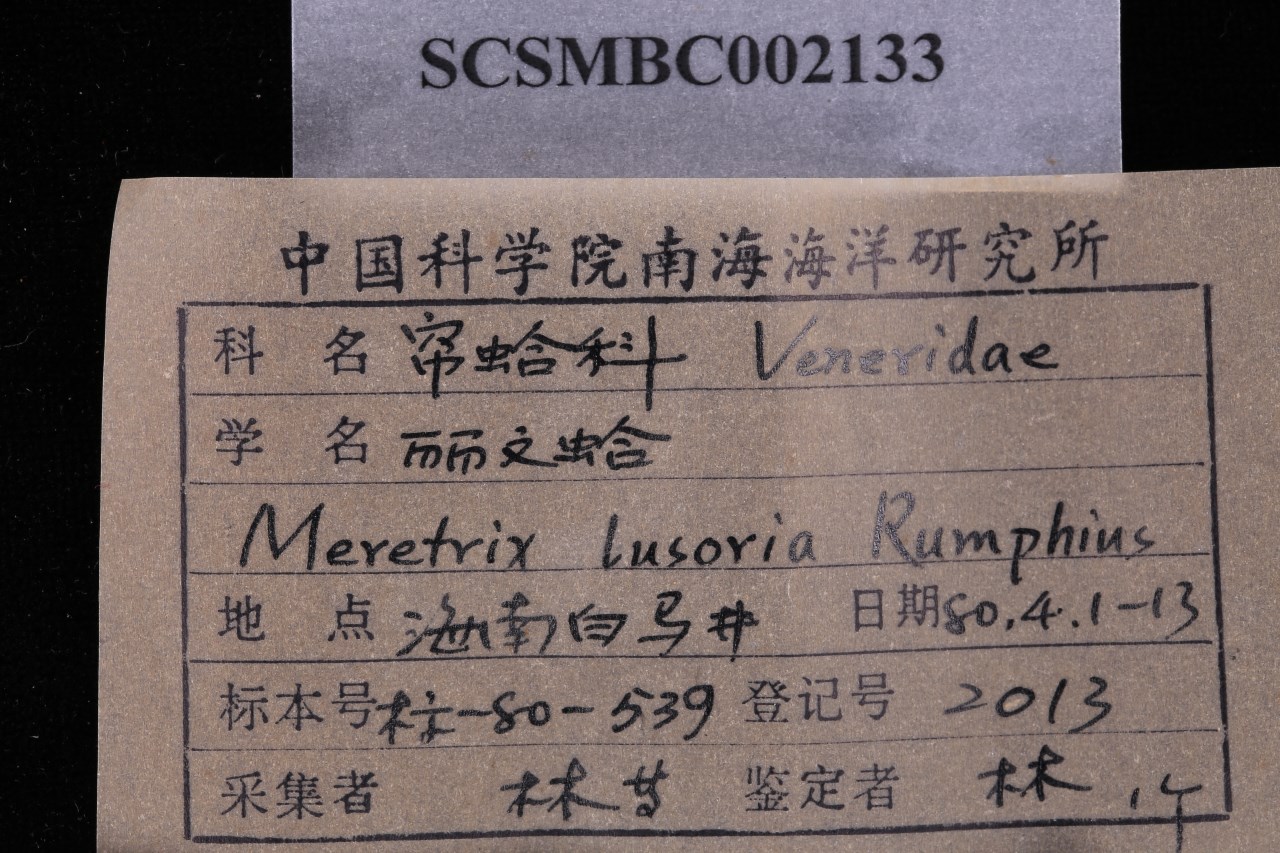 SCSMBC002133
中国科学院南海海洋研究所
科 名 帘蛤科 Veneridae
学 名 丽文蛤
Meretrix lusoria Rumphius
地 点 海南白马井 日期 80.4.1-13
标本号 标-80-539 登记号 2013
采集者 林 鉴定者 林